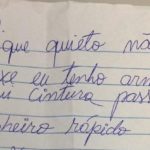 ique quieto nã
xe eu tenho arm
u cintura pass
nheiro rápido